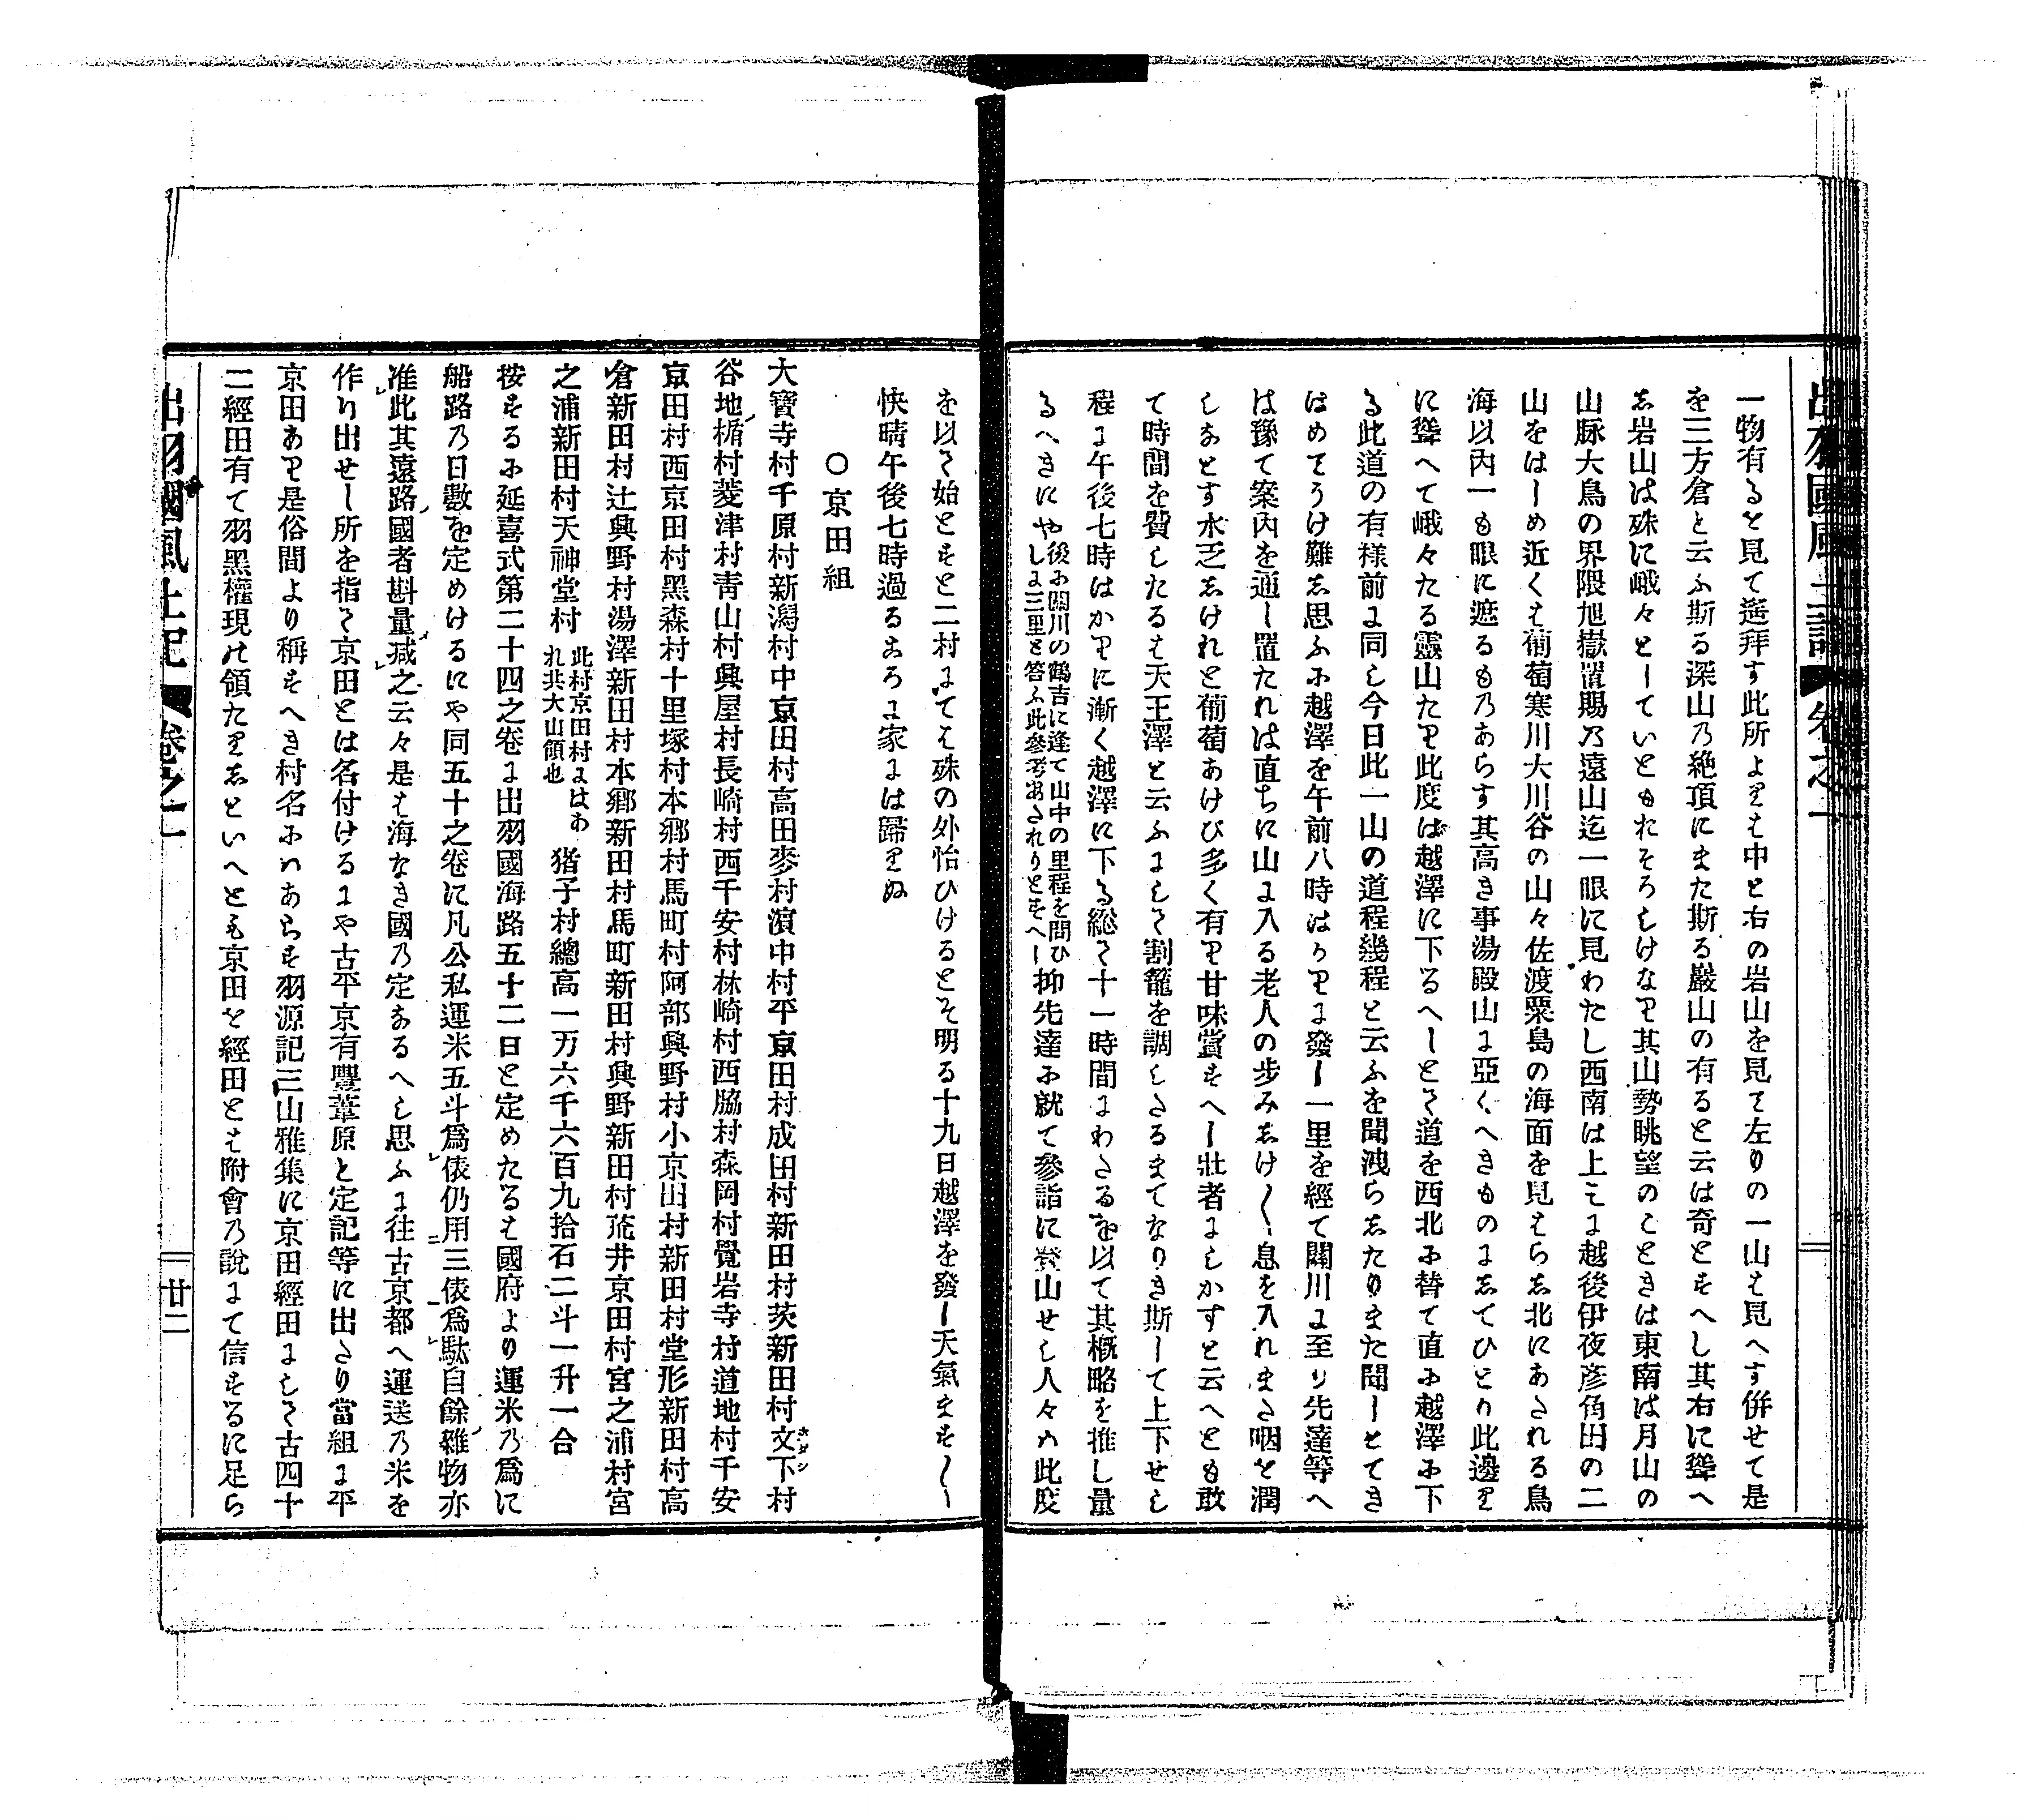 一物有ると見て遙拜す此所より左は中と右の岩山を見て左りの一山は見へす併せて是
を三方倉と云ふ斯る深山乃絶頂にまた斯る巖山の有ると云は奇とすへし其右に聳へ
し岩山は殊に峨々としていともおそろしけなり其山勢眺望のことときは東南は月山の
山脉大鳥の界隈旭嶽置賜乃遠山迄一眼に見わたし西南は上こに越後伊夜彦角田の二
山をはしめ近くは葡萄寒川大川谷の山々佐渡粟島の海面を見はらし北にあたれる鳥
海以内一も眼に遮るもの乃あらす其高き事湯殿山に亞くへきものにしてひとり此邊り
に聳へて峨々たる靈山たり此度は越澤に下るへしとて道を西北に替て直に越澤に下
る此道の有様前に同し今日此一山の道程幾程と云ふを聞洩らしたりまた聞しとてき
はめてうけ難し思ふに越澤を午前八時はかりに發し一里を經て關川に至り先達等へ
は豫て案内を通し置たれは直ちに山に入る老人の歩みしけ〳〵息を入れまた咽を潤
しなとす水乏しけれと葡萄あけび多く有り甘味賞すへし壯者にしかすと云へとも敢
て時間を費したるは天王澤と云ふにして割籠を調したるまてなりき斯して上下せし
程に午後七時はかりに漸く越澤に下る総て十一時間にわたるを以て其概略を推し量
るへきにや後に關川の鶴吉に逢て山中の里程を問ひしに三里と答ふ此參考なされりとすへし抑先達に就て參詣に登山せし人々の此度
を以て始とすと二村にては殊の外怡ひけるとそ明る十九日越澤を發し天氣ます〳〵
快晴午後七時過るころに家には歸りぬ
○京田組
大寶寺村千原村新潟村中京田村高田麥村濱中村平京田村成田村新田村茨新田村文下村
谷地楯村菱津村靑山村興屋村長崎村西千安村林崎村西脇村森岡村覺岩寺村道地村千安
京田村西京田村黑森村十里塚村本郷村馬町村阿部興野村小京田村新田村堂形新田村高
倉新田村辻興野村湯澤新田村本郷新田村馬町新田村興野新田村荒井京田村宮之浦村宮
之浦新田村天神堂村此村京田村にはあれ共大山領也猪子村總高一万六千六百九拾石二斗一升一合
按するに延喜式第二十四之卷に出羽國海路五十二日と定めたるは國府より運米乃爲に
船路乃日數を定めけるにや同五十之卷に凡公私運米五斗爲俵仍用三俵爲駄自餘雜物亦
准此其遠路國者斟量减之云々是は海なき國乃定あるへし思ふに往古京都へ運送乃米を
作り出せし所を指て京田とは名付けるにや古平京有豐葦原と定記等に出たり當組に平
京田あり是俗間より稱すへき村名にはあらす羽源記三山雅集に京田經田にして古四十
二經田有て羽黑權現の領たりしといへとも京田を經田とは附會乃說にて信するに足ら
出羽國風土記 卷之二
廿二